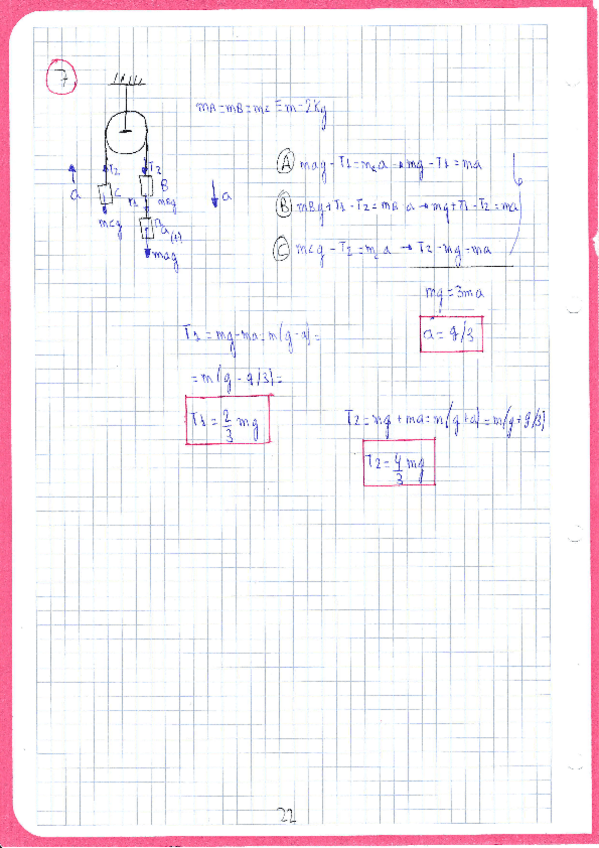 7
mA = mB = mC ≡ m = 2Kg
T2 T2
a C B a
T1 mBg
mCg
mAg
(A) mAg - T1 = mA a → mg - T1 = ma
(B) mBg + T1 - T2 = mB a → mg + T1 - T2 = ma
(C) mCg - T2 = mC a → T2 - mg = ma
mg = 3ma
a = g/3
T1 = mg - ma = m(g - a) =
= m(g - g/3) =
T1 = 2/3 mg
T2 = mg + ma = m(g + a) = m(g + g/3)
T2 = 4/3 mg
22